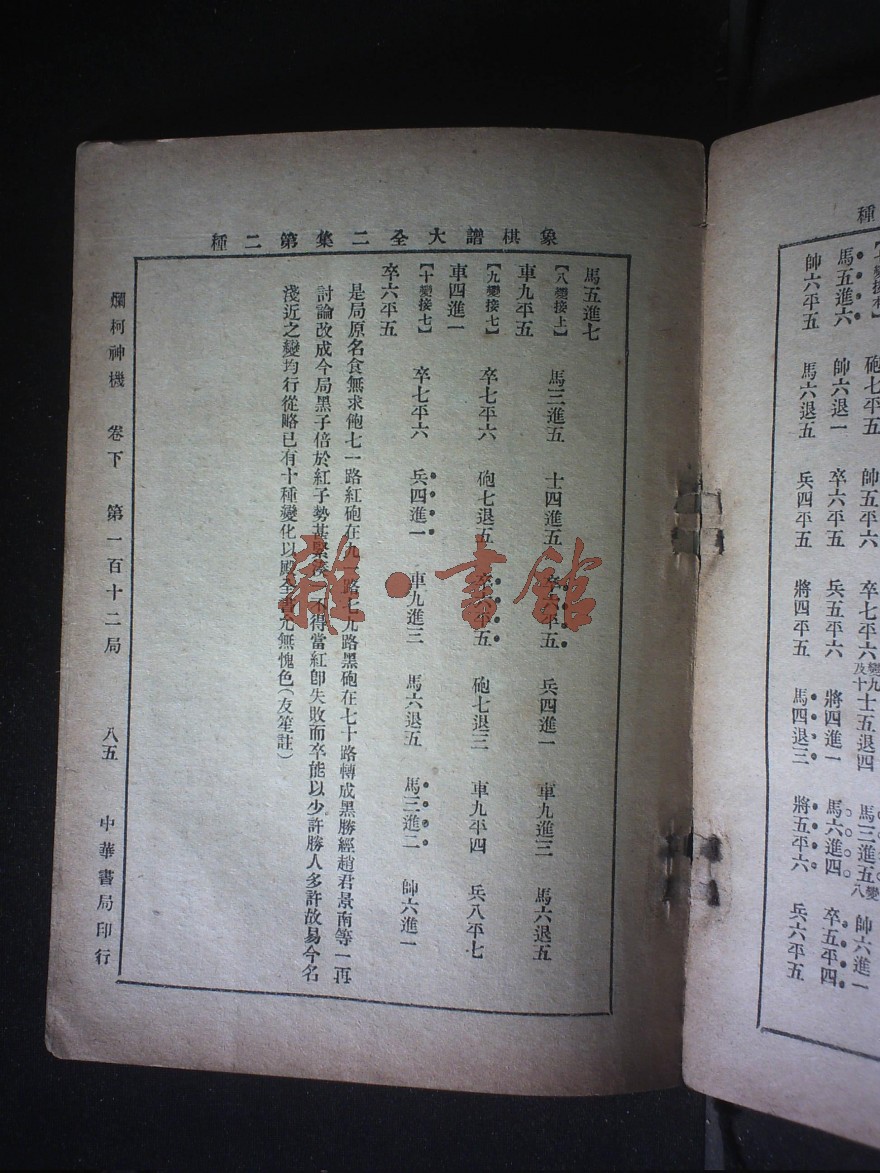 種
【七變接本】　砲七平五　帥五平六　卒七平六　變九及十　士五退四　馬三進五　八變　帥六進一
馬五進六　帥六退一　卒六平五　兵五平六　將四進一　馬六進四　卒五平四
帥六平五　馬六退五　兵四平五　將四平五　馬四退三　將五平六　兵六平五
象棋譜大全二集第二種
馬五進七
【八變接上】　馬三進五　士四進五　卒六平五　兵四進一　車九進三　馬六退五
車九平五
【九變接七】　卒七平六　砲七退五　卒六平五　砲七退三　車九平四　兵八平七
車四進一
【十變接七】　卒七平六　兵四進一　車九進三　馬六退五　馬三進二　帥六進一
卒六平五
是局原名食無求飽七一路紅砲在九一路七九路黑砲在七十路轉成黑勝經趙君景南等一再
討論改成今局黑子倍於紅子勢甚緊不得當紅卽失敗而卒能以少許勝人多許故易今名
淺近之變均行從略已有十種變化以殿全書尤無愧色（友笙註）
爛柯神機　卷下　第一百十二局　八五　中華書局印行
雜·書館